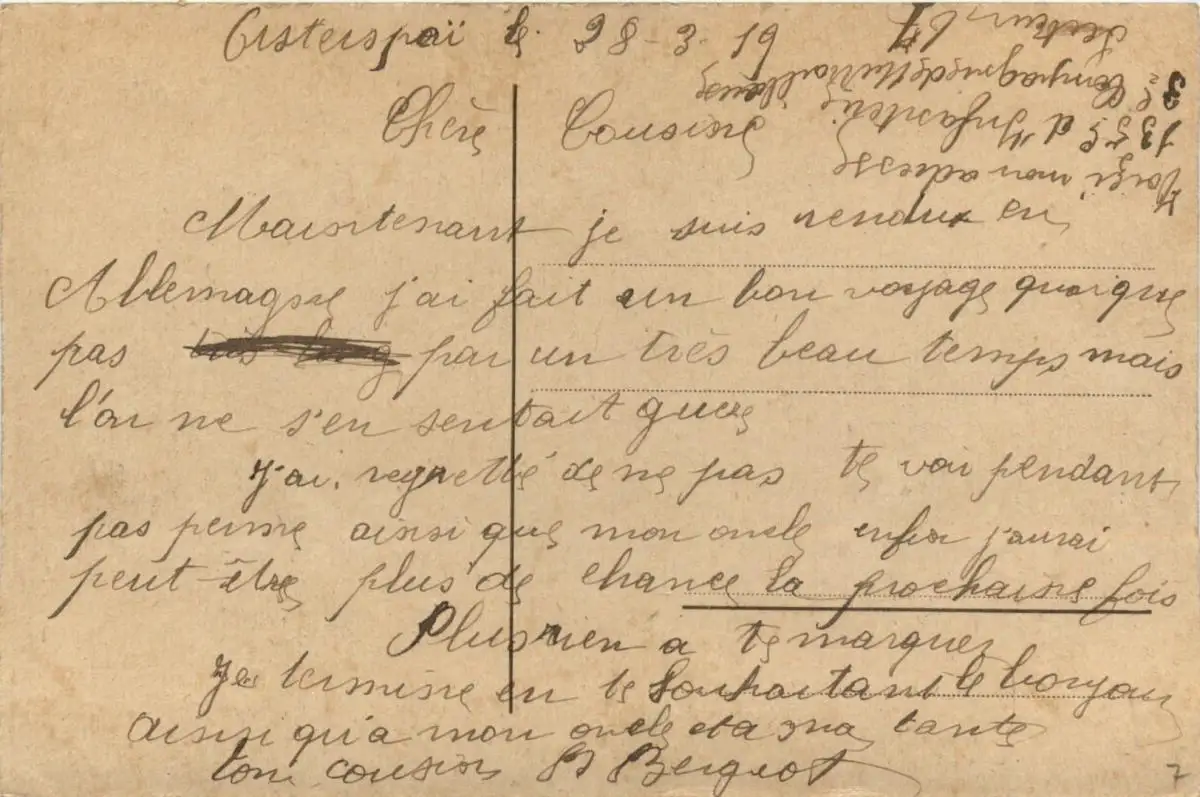 Osterspaï le 28-3-19
Chère Cousine
Maintenant je suis rendux en
Allemagne j'ai fait un bon voyage quoique
pas très long par un très beau temps mais
l'on ne s'en sentait guere
J'ai regretté de ne pas te voir pendant
pas perme ainsi que mon oncle enfin j'aurai
peut-être plus de chance la prochaine fois
Plus rien a te marquer
Je termine en te souhaitant le bonjour
ainsi qu'a mon oncle et a ma tante
ton cousin Bergeot
Voici mon adresse
135e d'Infanterie
3e Compagnie de Mitrailleuse
Secteur 67
7